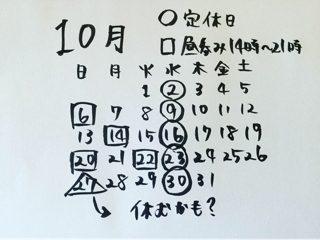 10月
○定休日
□昼呑み14時〜21時
日 月 火 水 木 金 土
1 2 3 4 5
6 7 8 9 10 11 12
13 14 15 16 17 18 19
20 21 22 23 24 25 26
27 28 29 30 31
休むかも?